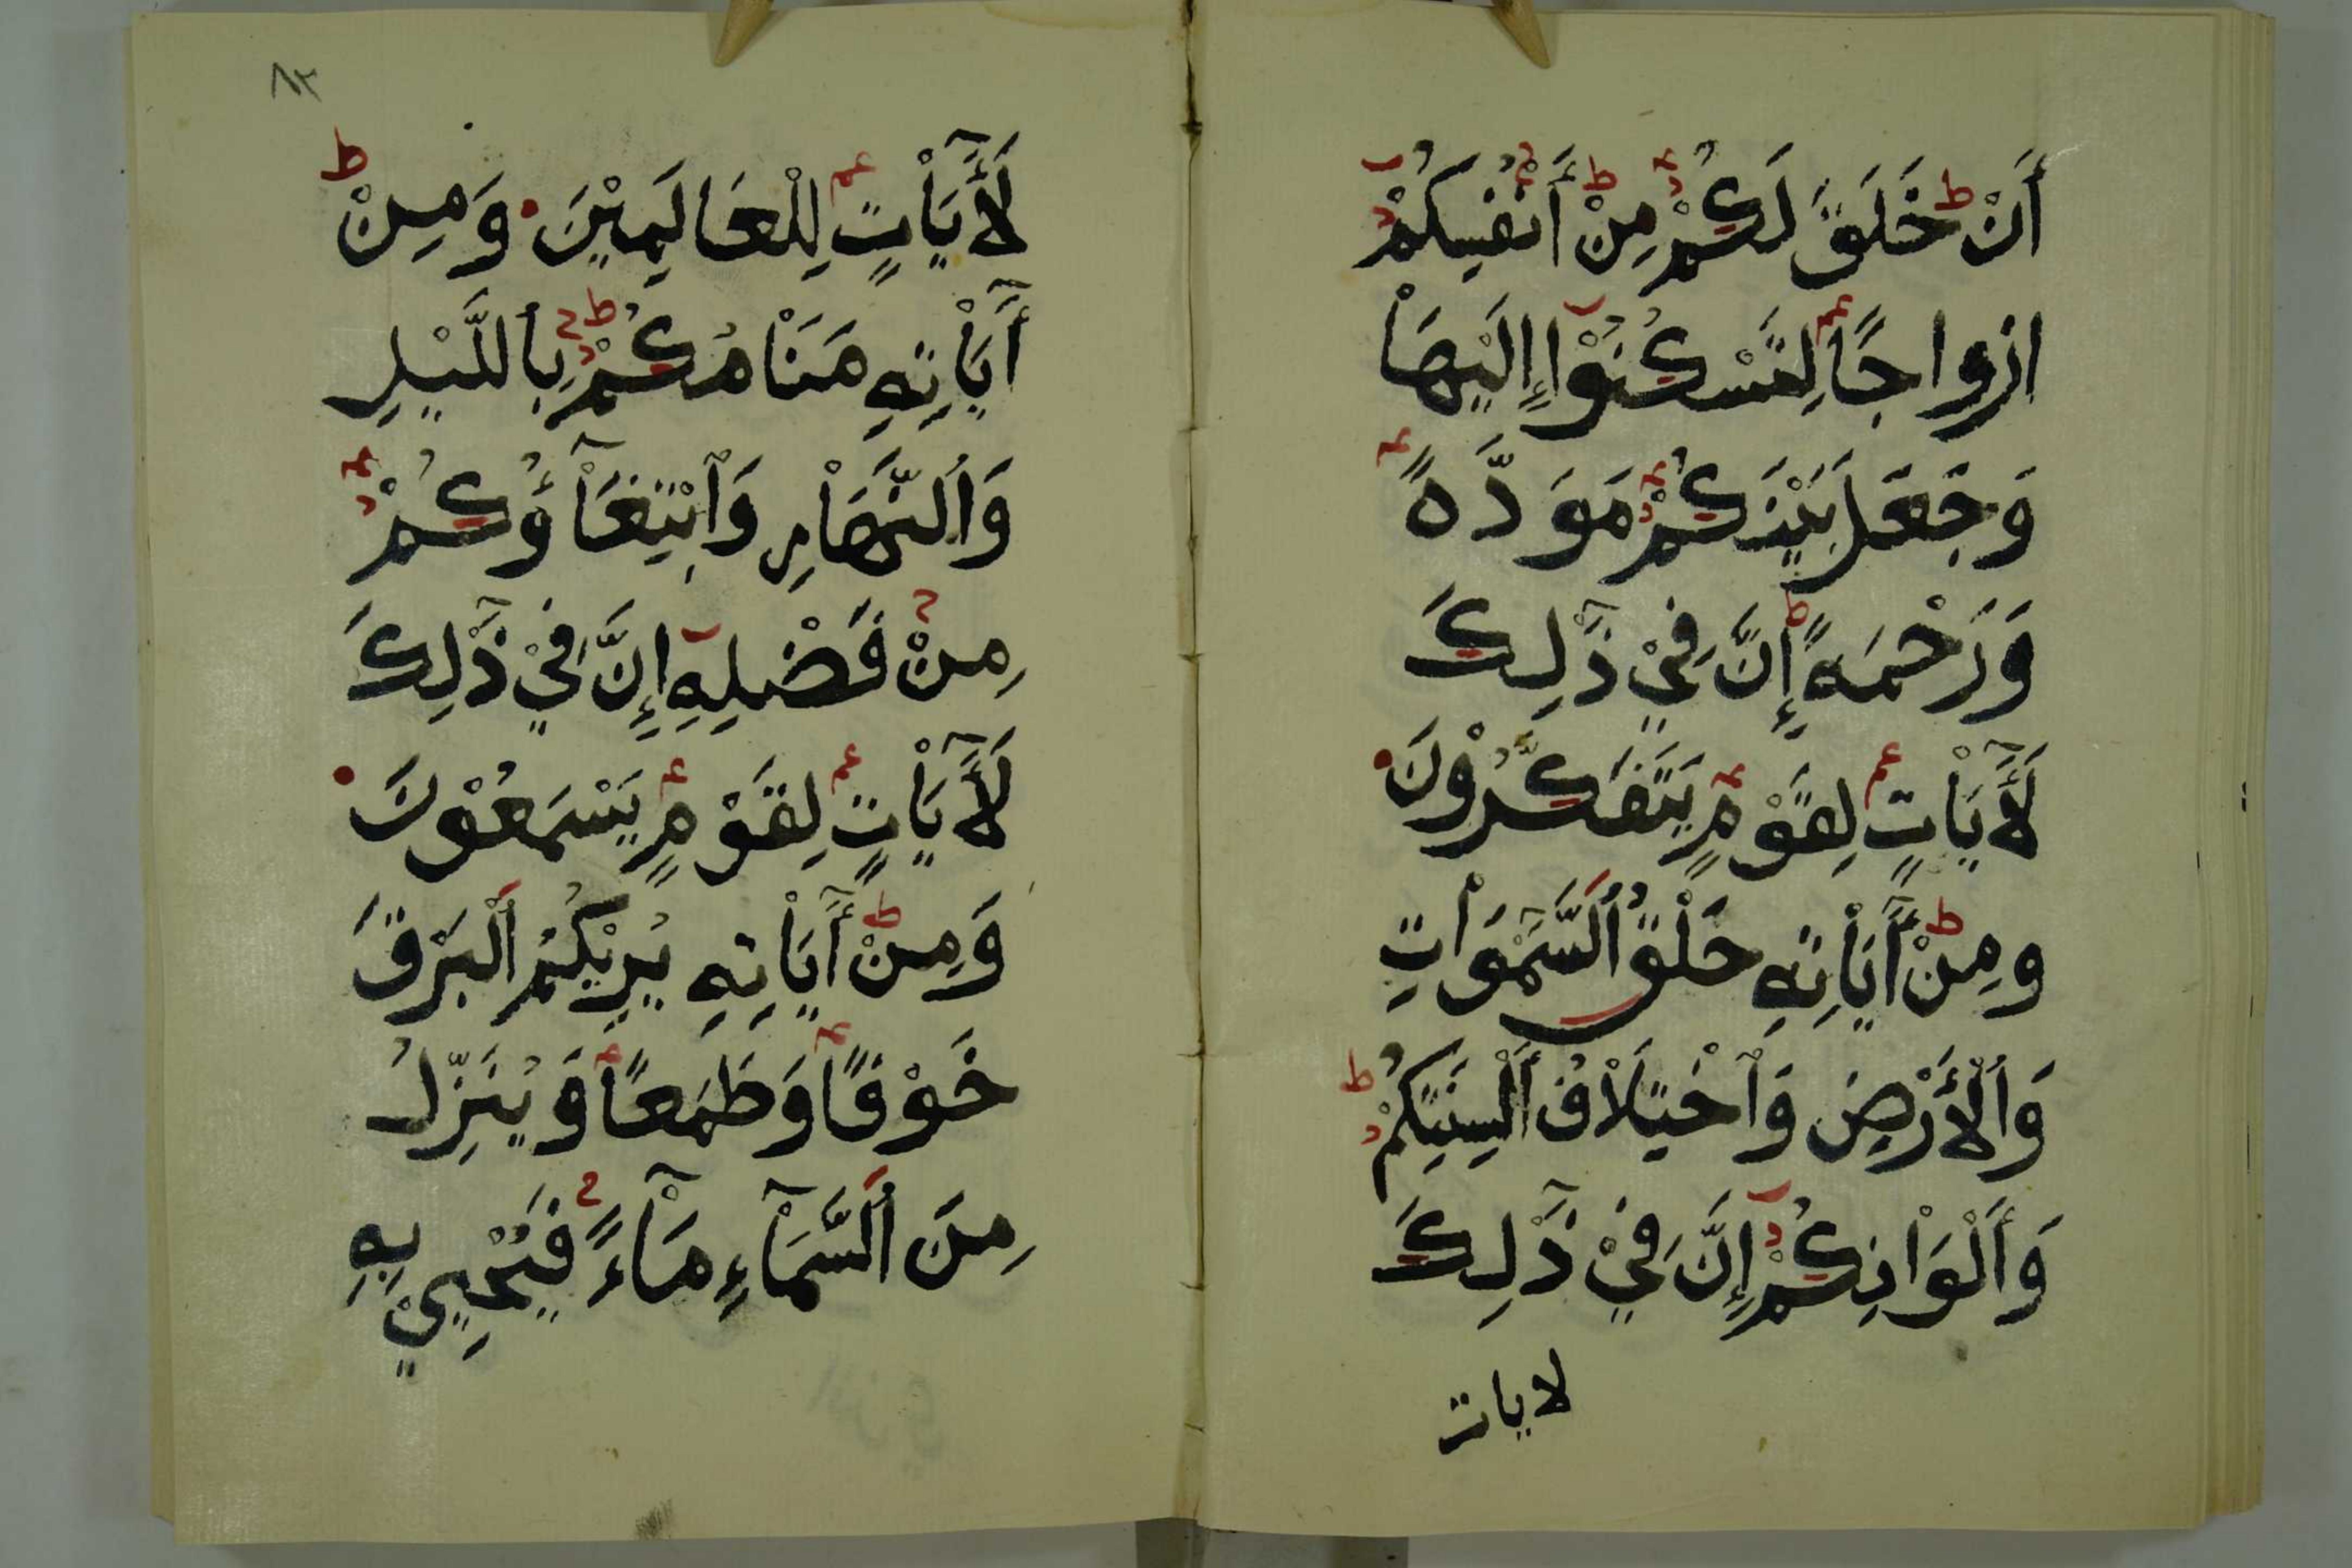 أَنْ خَلَقَ لَكُمْ مِنْ أَنْفُسِكُمْ
ازواجًا لِتَسْكُنُوْا إِلَيْهَاْ
وَجَعَلَ بَيْنَكُمْ مَوَدَّهً
وَرَحْمَهً إِنَّ فِيْ ذَٰلِكَ
لَأٓيَاْتٍ لِقَوْمٍ يَتَفَكَّرُوْنَ
ومِنْ أٓيَاْتِهِ خَلْقُ اُلسَّمَٰوَاْتِ
وَاُلْأَرْضِ وَاْخْتِلَاْفُ أَلْسِنَتِكُمْ
وَأَلْوَاْنِكُمْ إِنَّ فِيْ ذَٰلِكَ
لايات
٨٣
لَأٓيَاْتٍ لِلْعَالَمِيْنَ وَمِنْ
أٓيَاْتِهِ مَنَاْمُكُمْ بِاْللَّيْلِ
وَاُلنَّهَاْرِ وَاْبْتِغَآْؤُكُمْ
مِنْ فَضْلِهِ إِنَّ فِيْ ذَٰلِكَ
لَأٓيَاْتٍ لِقَوْمٍ يَسْمَعُوْنَ
وَمِنْ أٓيَاْتِهِ يُرِيْكُمُ اُلْبَرْقَ
خَوْفًا وَطَمَعًا وَيُنَزِّلُ
مِنَ اُلسَّمَآْءِ مَآْءً فَيُحْيِيْ بِهِ